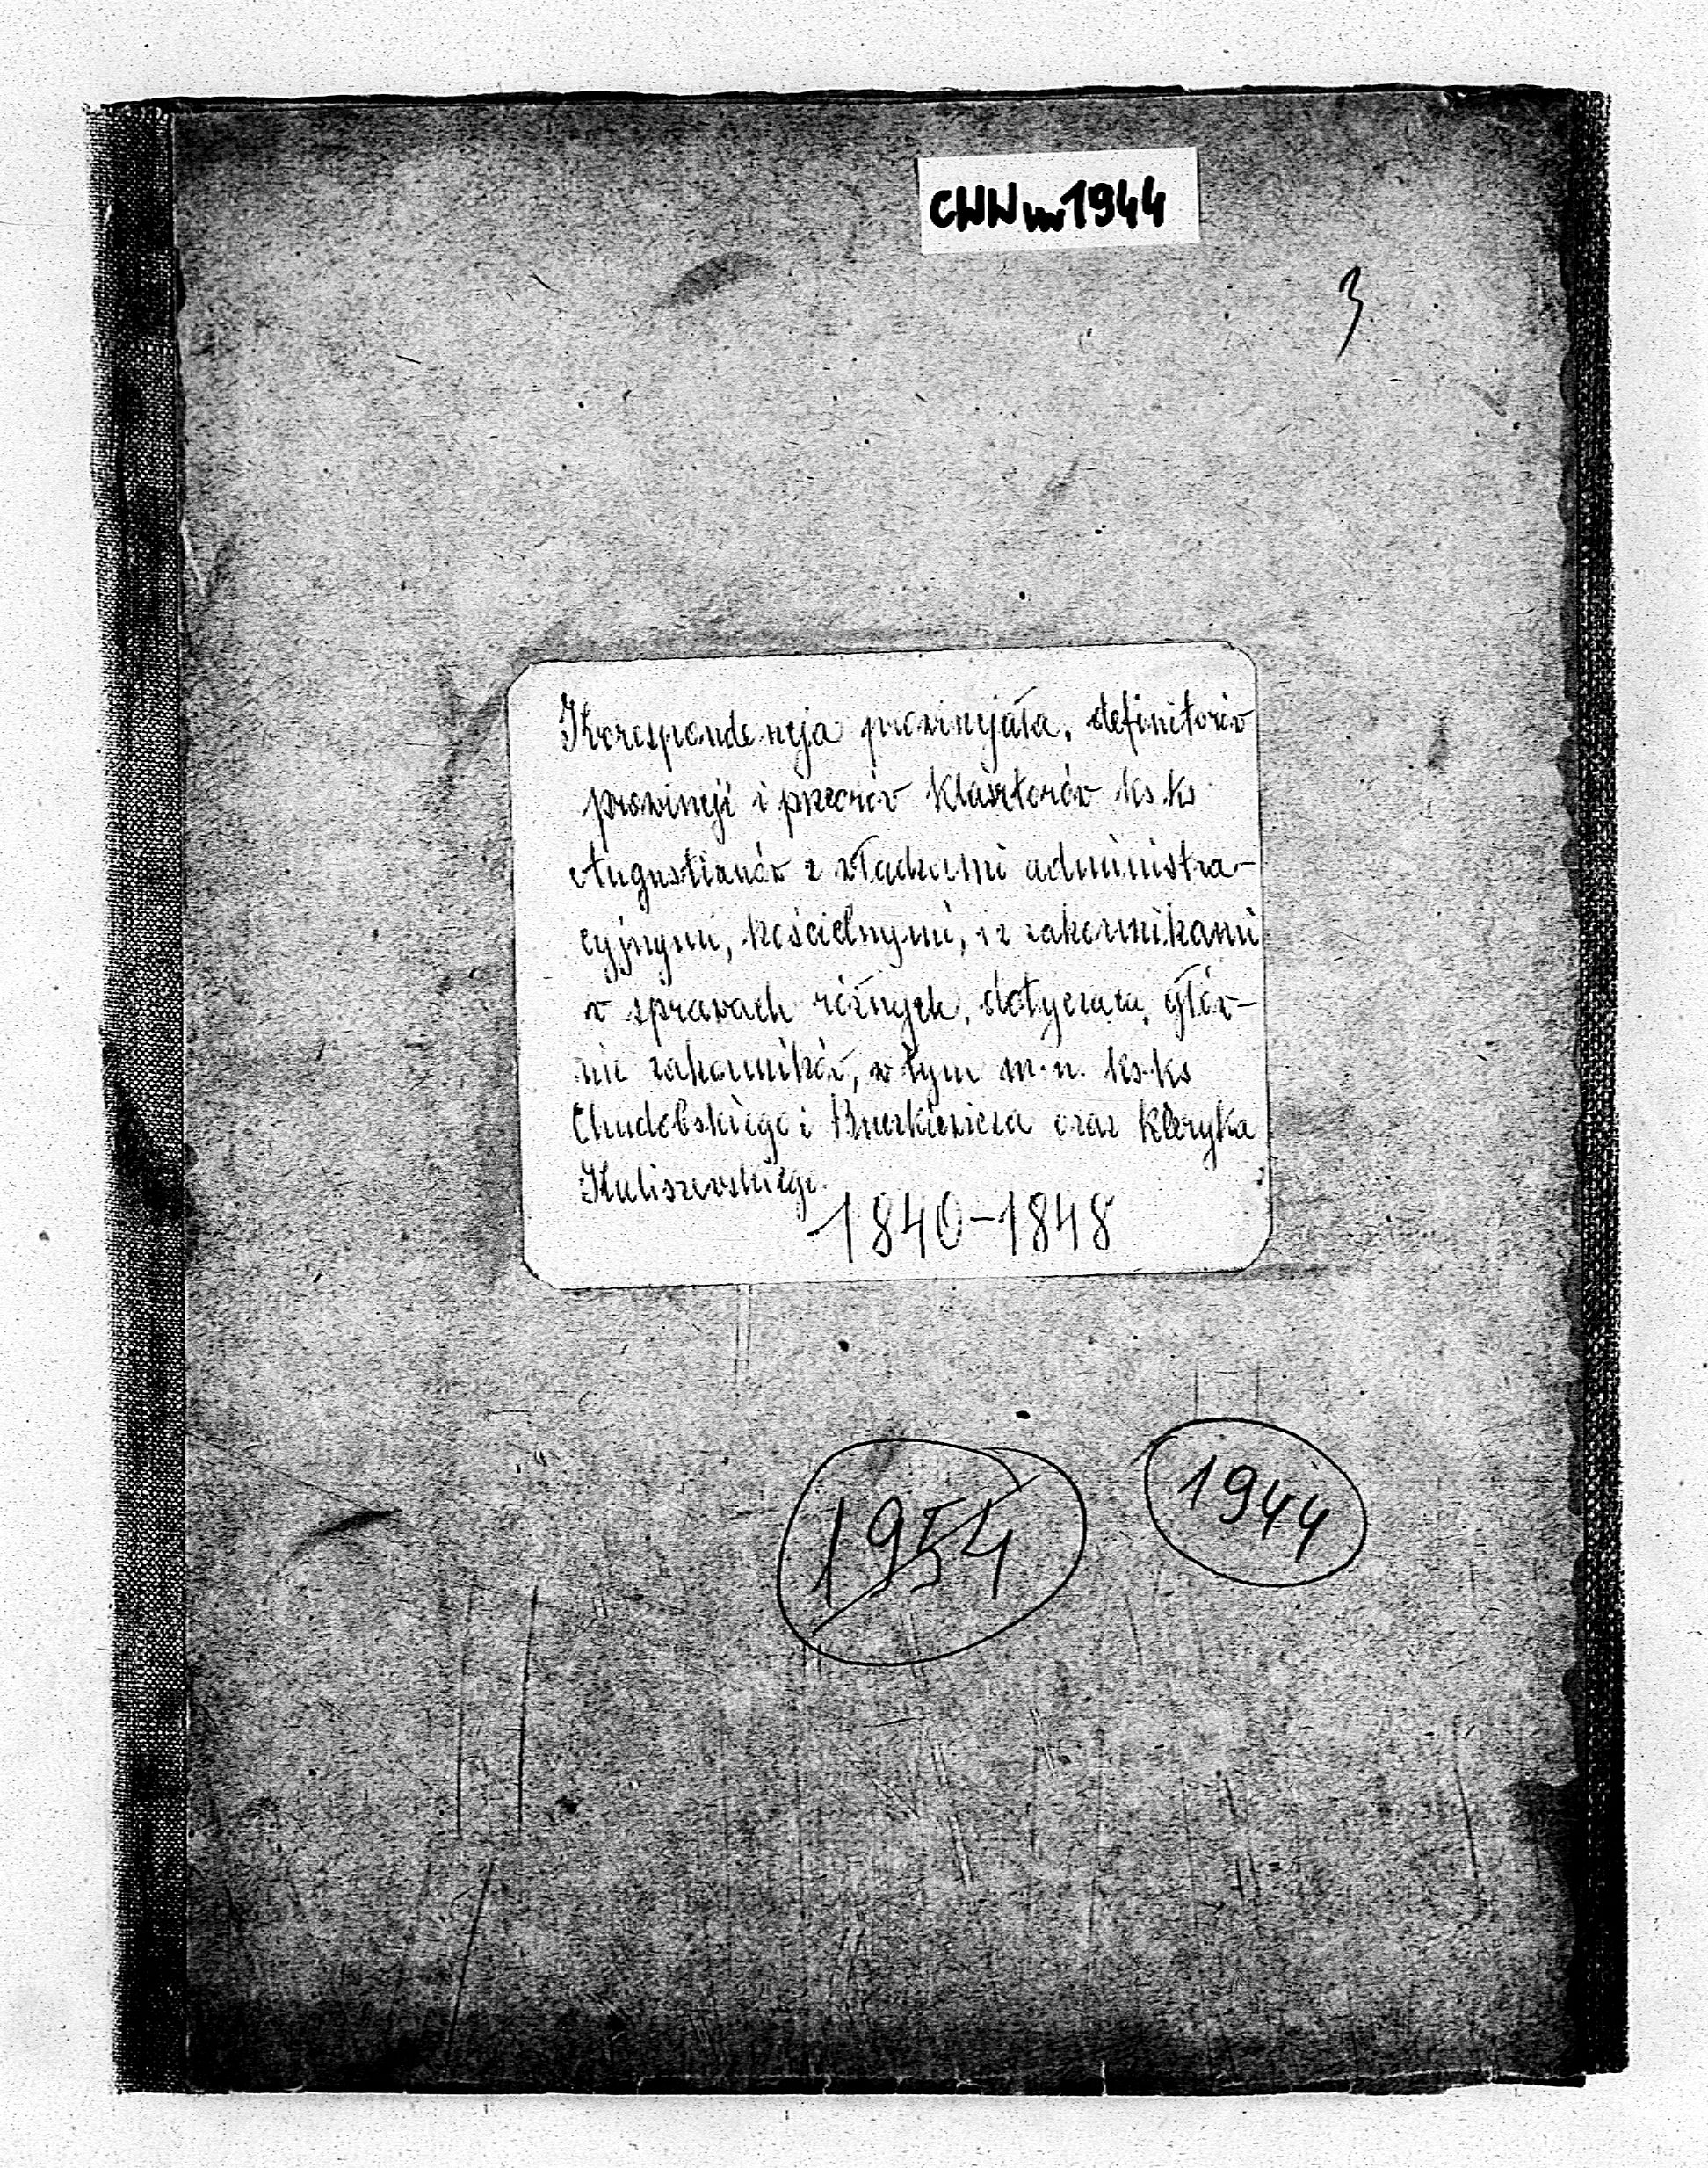 CWW 1944
3
Korespondencja prowincjała, definitorów
prowincji i przeorów klasztorów ks.ks
Augustianów z władzami administra-
cyjnymi, kościelnymi, i z zakonnikami
w sprawach różnych, dotycząca głów-
nie zakonników, w tym m.n. ks.ks
Chudobskiego i oraz kleryka
Kuliszewskiego.
1840-1848
1954
1944